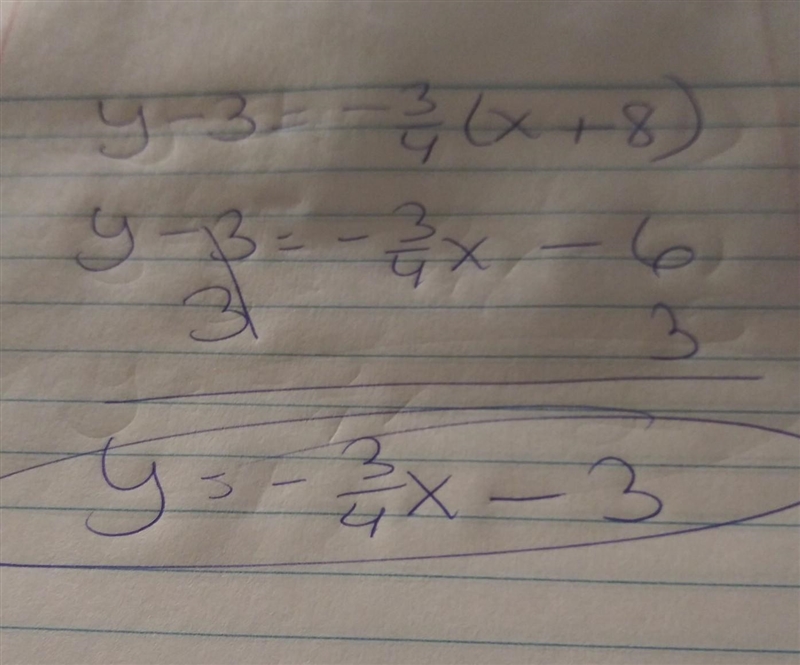 y - 3 = - 3/4 (x + 8)
y - 3 = - 3/4 x - 6
3 3
y = - 3/4 x - 3